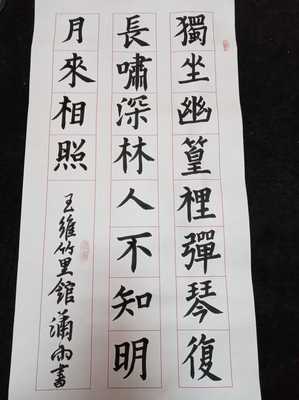 獨坐幽篁裡彈琴復
長嘯深林人不知明
月來相照
王維竹里館瀟雨書